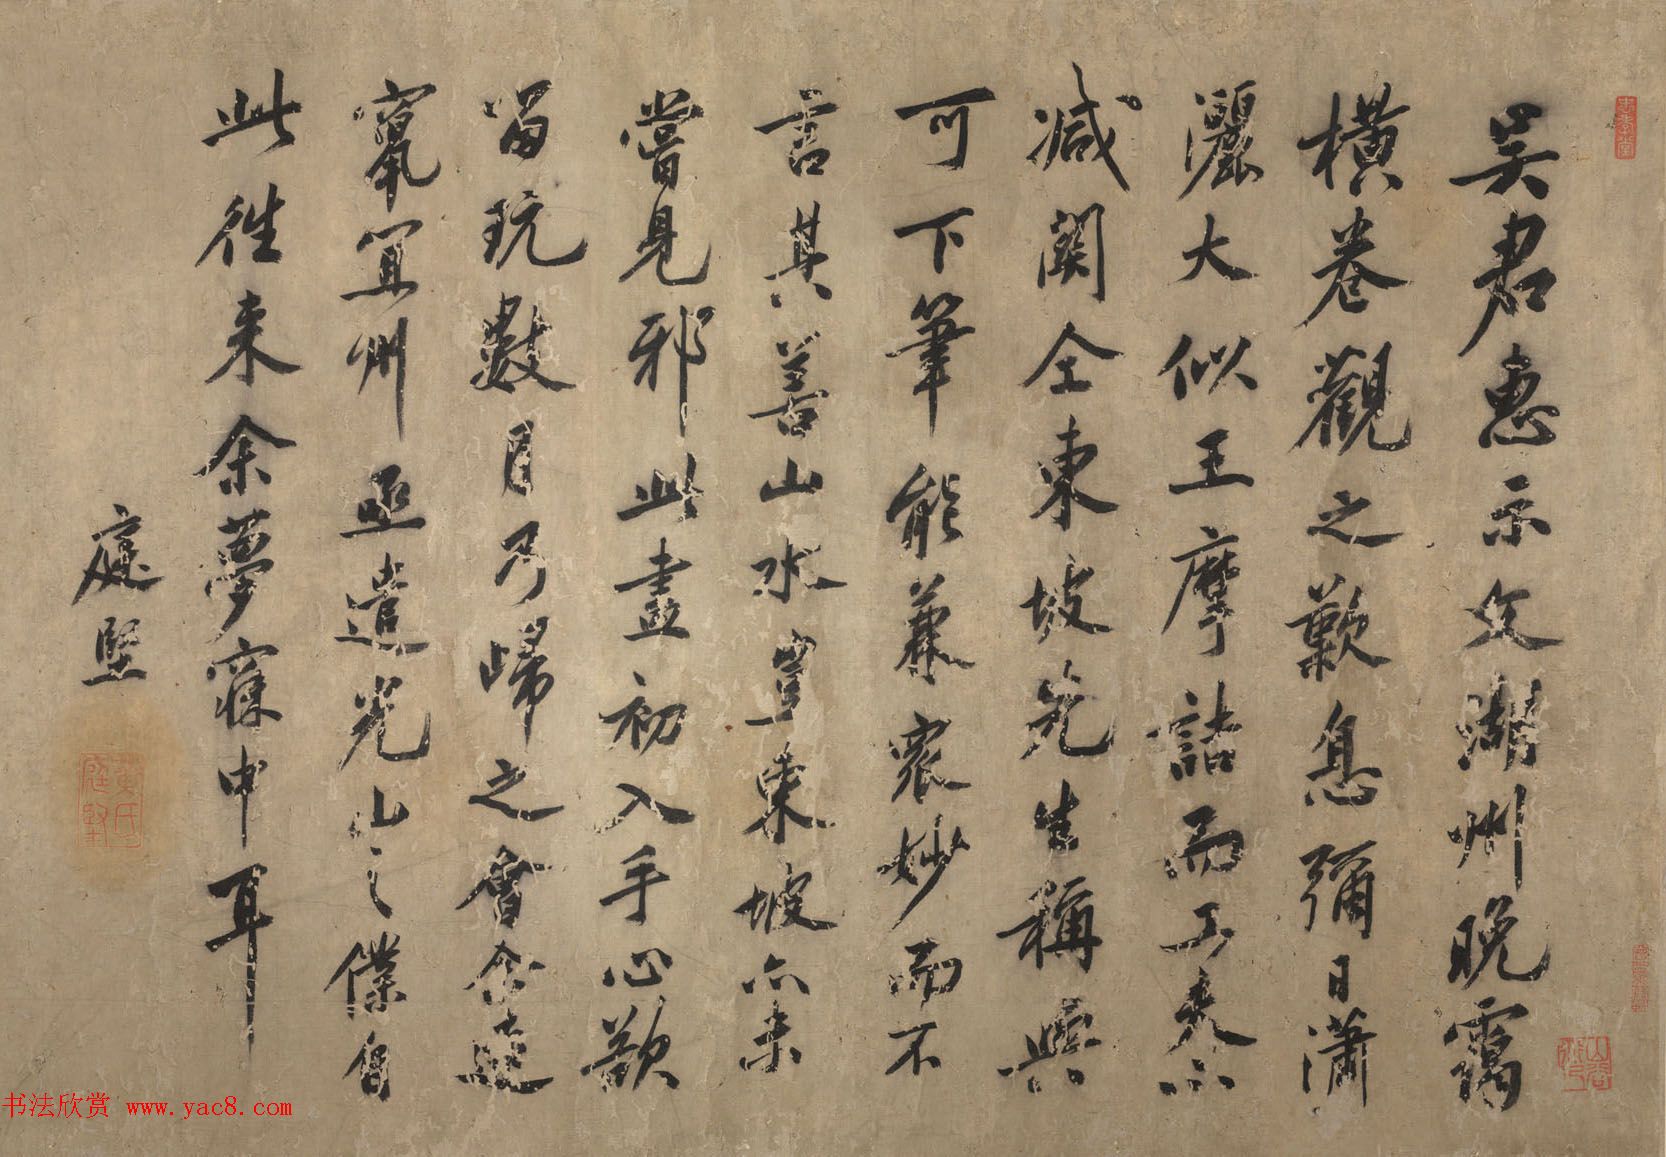 吴君惠示文湖州晚靄
橫卷觀之歎息彌日瀟
灑大似王摩詰而工夫不
減關仝東坡先生稱與
可下筆能兼衆妙而不
言其善山水豈東坡亦未
嘗見邪此畫初入手心欲
留玩數月乃歸之會余遠
竄宜州亟遣光山之僕自
此往來余夢寐中耳
庭堅
黃氏庭堅
书法欣赏 www.yac8.com